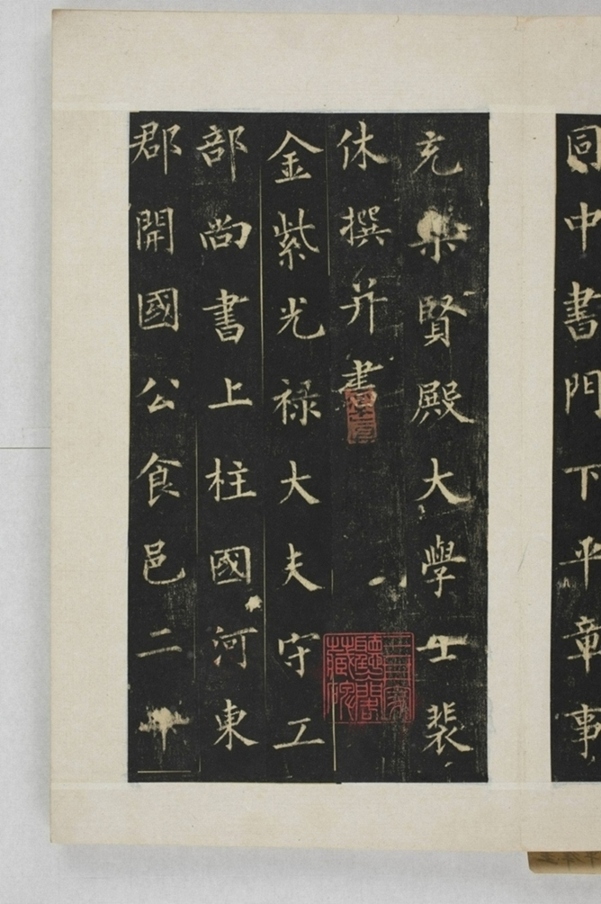 同中書門下平章事
充集賢殿大學士裴
休撰并書
金紫光禄大夫守工
部尚書上柱國河東
郡開國公食邑二千